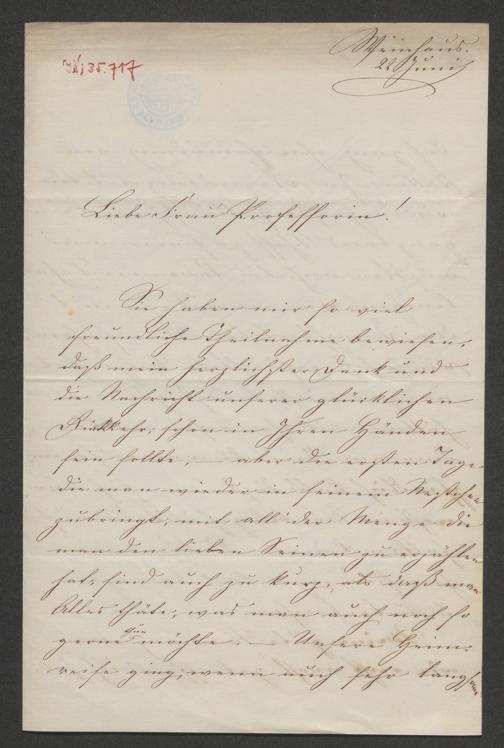 Weinhaus.
22 Juni
35.717
Liebe Frau Professorin!
Sie haben mir so viel
freundliche Theilnahme bewiesen,
daß mein herzlichster Dank und
die Nachricht unserer glücklichen
Rückkehr, schon in Ihren Händen
sein sollte, – aber die ersten Tage,
die man wieder in seinem
zubringt, mit all' der Menge die
man den lieben Seinen zu erzählen
hat, sind auch zu kurz, als daß man
Alles thäte, was man auch noch so
gerne thun möchte. – Unsere Heim-
reise ging, wenn auch sehr langsam